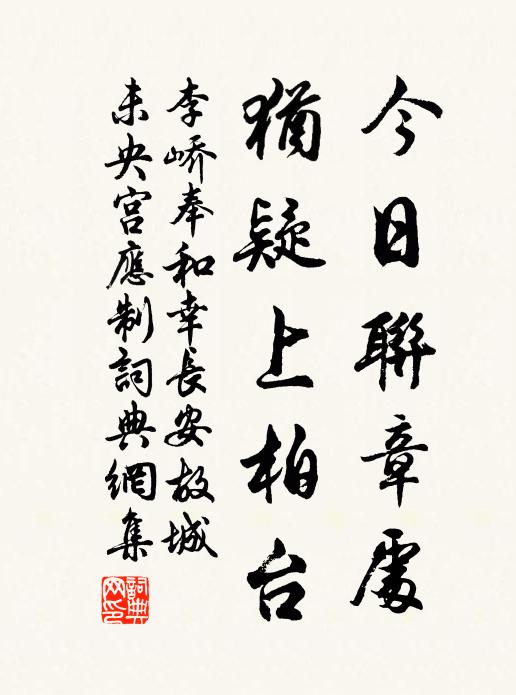 今日聯章處
猶疑上柏台
李嶠奉和幸長安故城
未央宮應制詞典網集
詞典网印